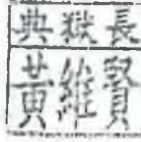 典獄長
黃維賢